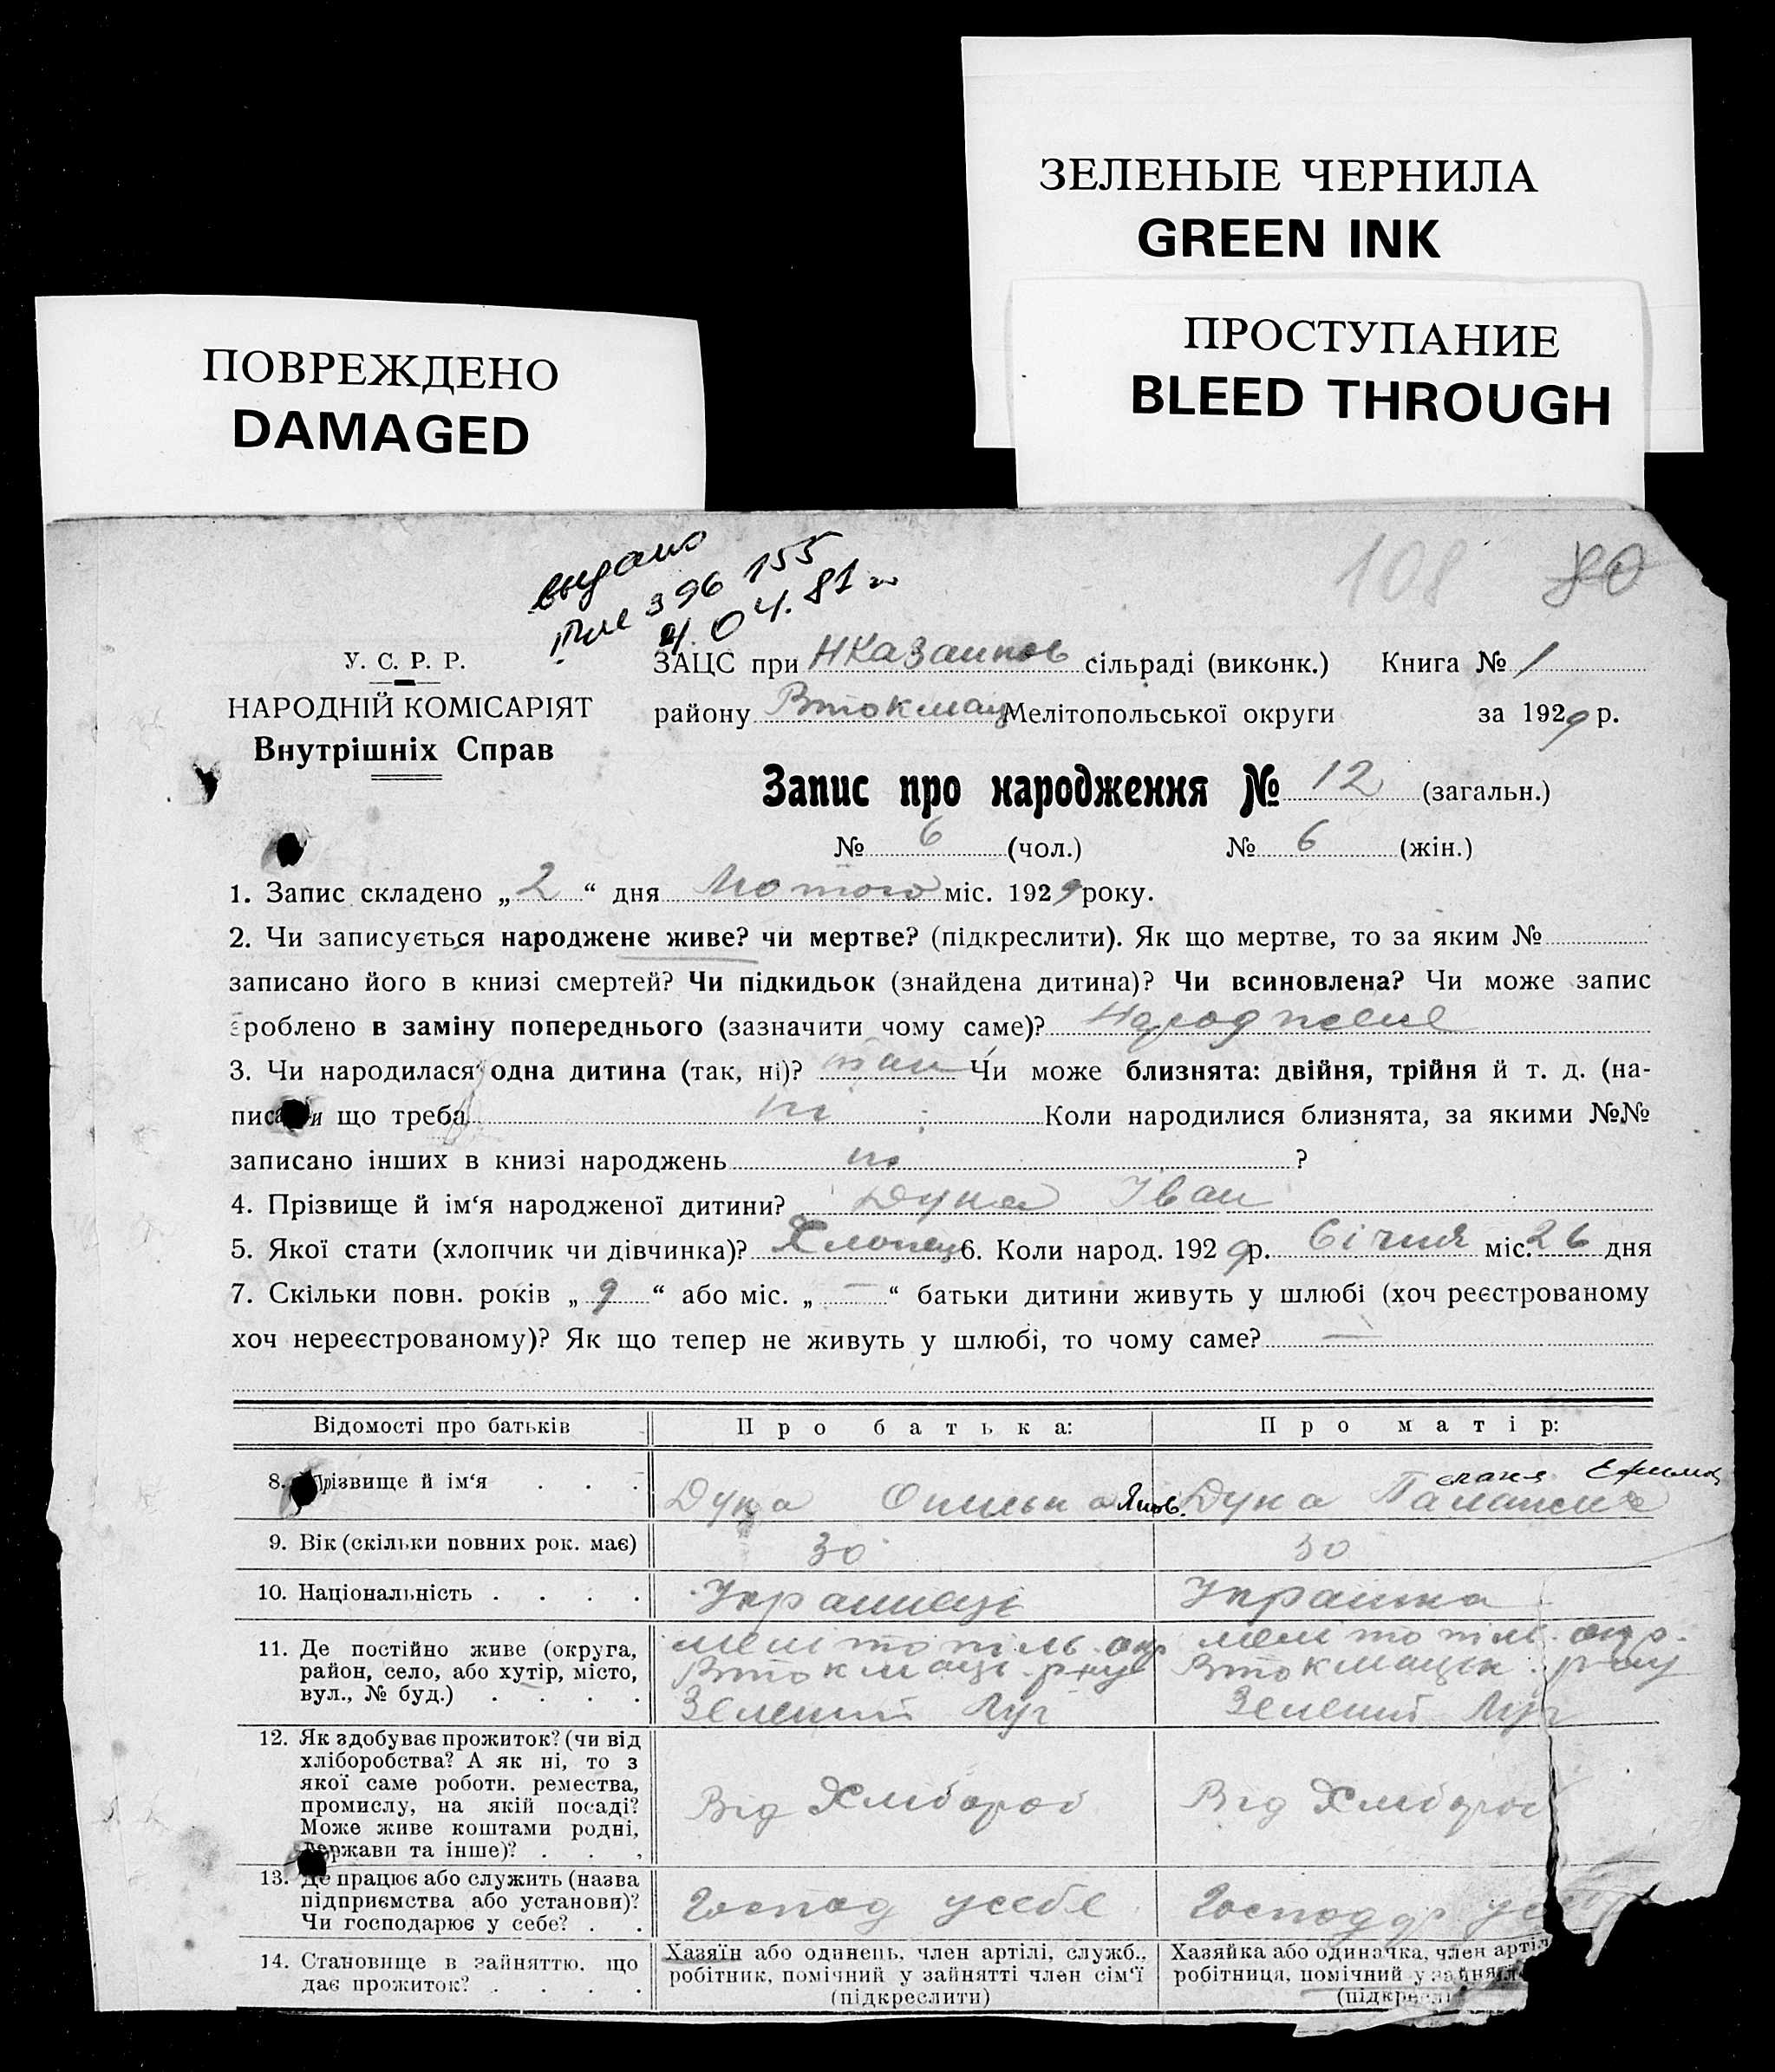 ЗЕЛЕНЫЕ ЧЕРНИЛА
GREEN INK
ПРОСТУПАНИЕ
BLEED THROUGH
ПОВРЕЖДЕНО
DAMAGED
108 80
выдано
396 155
4.04.81 г
У. С. Р. Р.
НАРОДНІЙ КОМІСАРІЯТ
Внутрішніх Справ
ЗАЦС при сільраді (виконк.) Книга № 1
району Втокмац Мелітопольської округи за 1929 р.
Запис про народження № 12 (загальн.)
№ 6 (чол.) № 6 (жін.)
1. Запис складено „ 2 “ дня Лютого міс. 1929 року.
2. Чи записується народжене живе? чи мертве? (підкреслити). Як що мертве, то за яким №
записано його в книзі смертей? Чи підкидьок (знайдена дитина)? Чи всиновлена? Чи може запис
зроблено в заміну попереднього (зазначити чому саме)? Народжене
3. Чи народилася одна дитина (так, ні)? так Чи може близнята: двійня, трійня й т. д. (на-
писати що треба ні Коли народилися близнята, за якими №№
записано інших в книзі народжень ні ?
4. Прізвище й ім‘я народженої дитини? Дука Іван
5. Якої стати (хлопчик чи дівчинка)? Хлопець 6. Коли народ. 1929 р. Січня міс. 26 дня
7. Скільки повн. років „ 9 “ або міс. „ — “ батьки дитини живуть у шлюбі (хоч реєстрованому
хоч нереєстрованому)? Як що тепер не живуть у шлюбі, то чому саме? —
Відомості про батьків Про батька: Про матір:
8. Прізвище й ім‘я . . . Дука Яков. Дука
9. Вік (скільки повних рок. має) 30 30
10. Національність . . . . Українець Українка
11. Де постійно живе (округа, Мелітопіль. окр Мелітопіль. окр.
район, село, або хутір, місто, Втокмацьк. рну
вул., № буд.) . . . . Зелений Луг Зелений Луг
12. Як здобуває прожиток? (чи від
хліборобства? А як ні, то з
якої саме роботи, ремества,
промислу, на якій посаді? Від Хлібороб Від Хлібороб
Може живе коштами родні,
держави та інше)? . . .
13. Де працює або служить (назва
підприємства або установи)? Господ усебе Господар
Чи господарює у себе? . .
14. Становище в зайняттю, що Хазяїн або одинець, член артілі, служб., Хазяйка або одиначка, член артіл
дає прожиток? . . . . робітник, помічний у зайнятті член сім‘ї робітниця, помічний у зайнят
(підкреслити) (підкресли